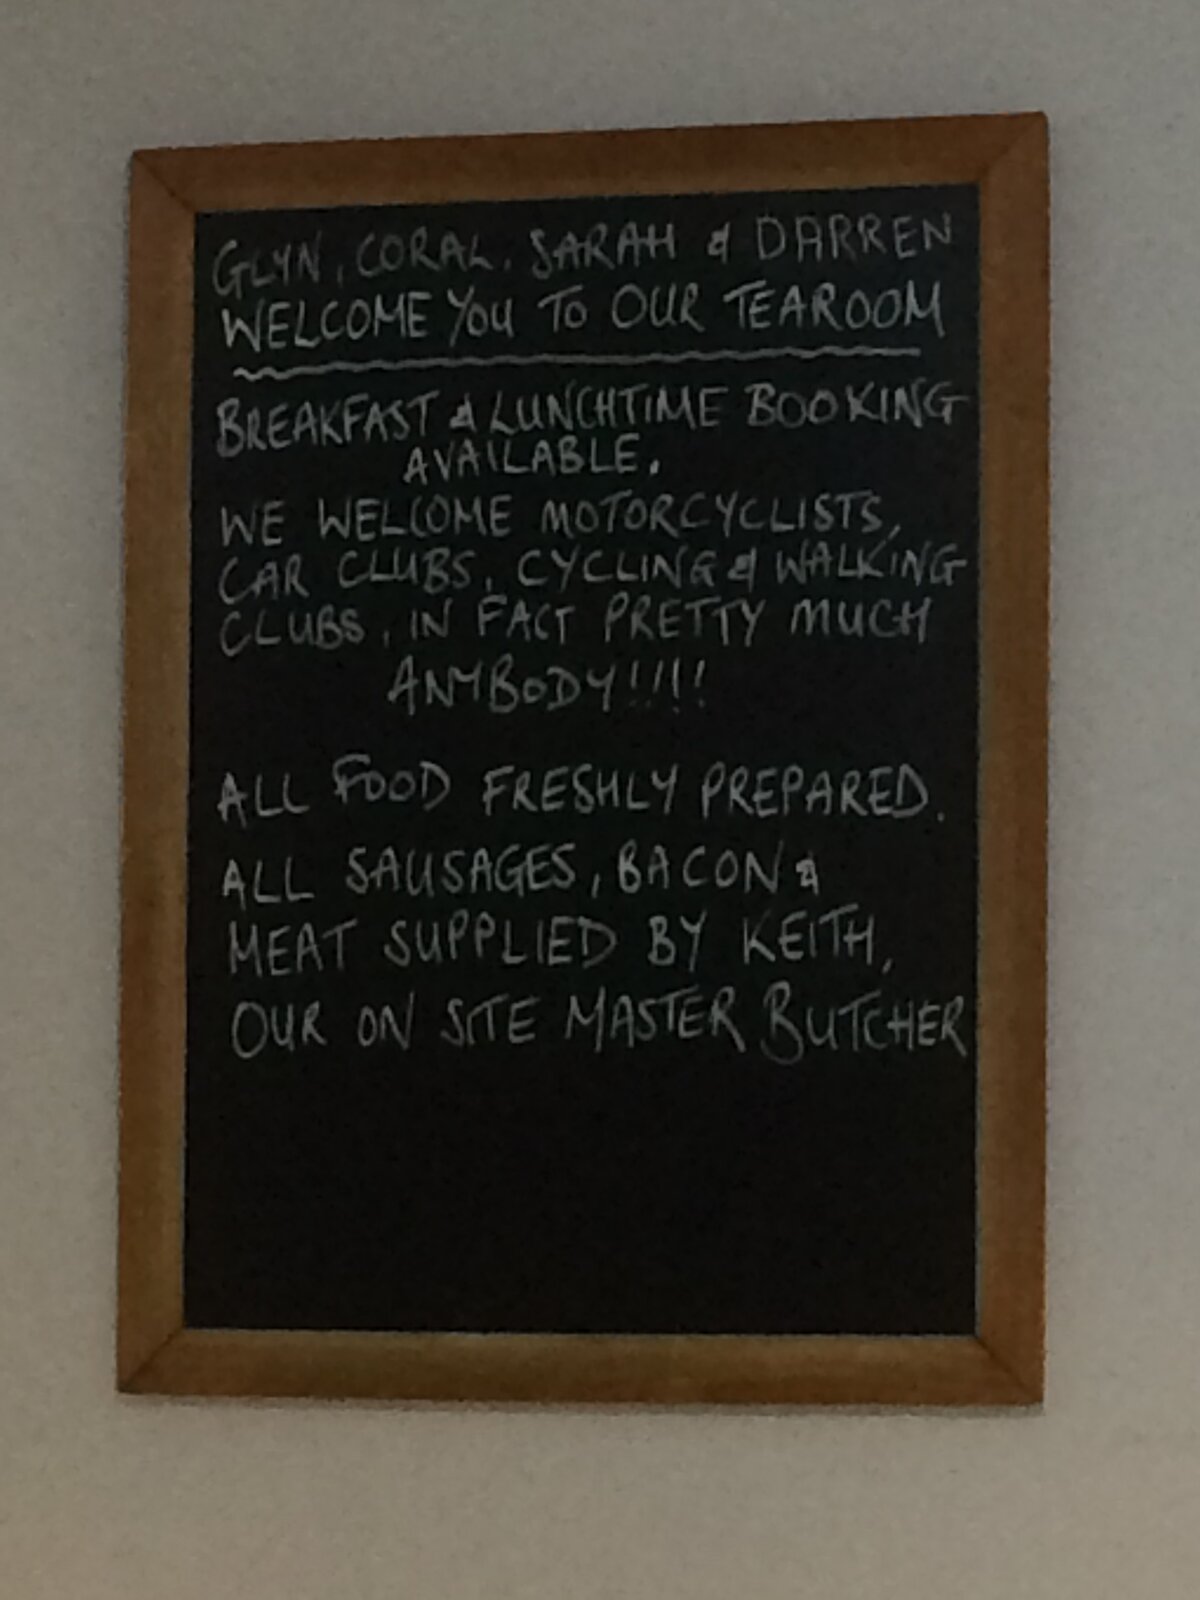 GLYN, CORAL, SARAH & DARREN
WELCOME YOU TO OUR TEAROOM
BREAKFAST & LUNCHTIME BOOKING
AVAILABLE.
WE WELCOME MOTORCYCLISTS,
CAR CLUBS, CYCLING & WALKING
CLUBS, IN FACT PRETTY MUCH
ANYBODY!!!!
ALL FOOD FRESHLY PREPARED.
ALL SAUSAGES, BACON &
MEAT SUPPLIED BY KEITH,
OUR ON SITE MASTER BUTCHER